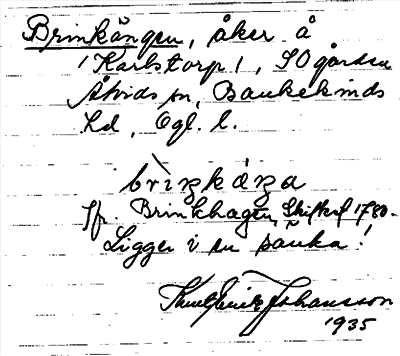 Brinkängen, åker å
/Karlstorp/, SO gården
Åtvids sn, Bankekinds
hd, Ögl. l.
brìŋkáŋa
Jfr. Brinkhagen, Skifteskf 1780.
Ligger i en sänka!
Knut Henrik Johansson
1935